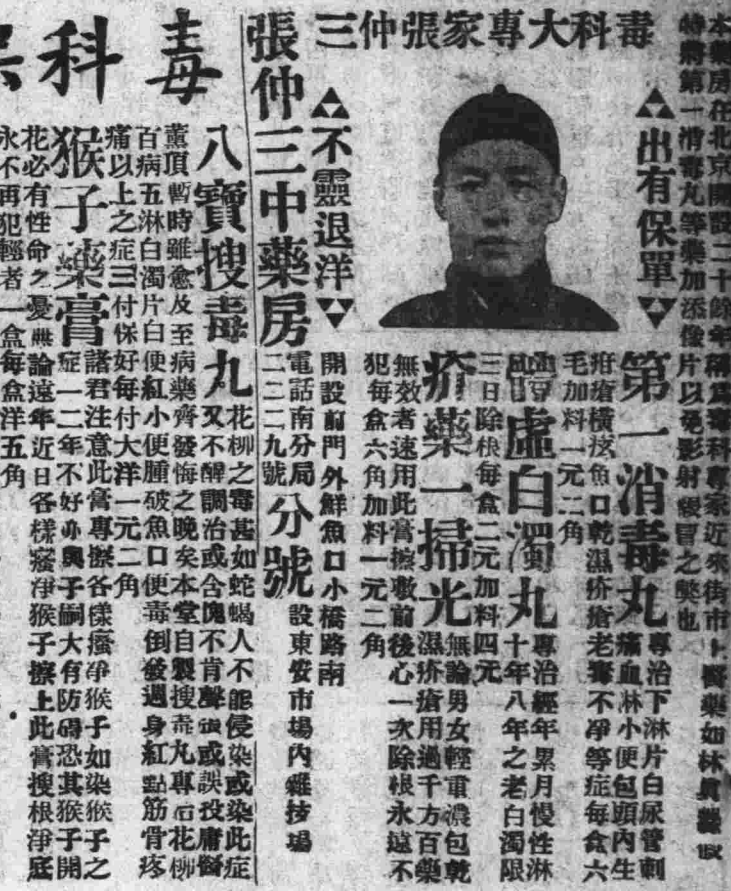 本藥房在北京開設二十餘年稱爲毒科專家近來街市上醫藥如林眞
特將第一消毒丸等藥加添像片以免影射冒之獘也
毒科大專家張仲三
出有保單
不靈退洋
第一消毒丸
專治下淋片白尿管刺
痛血淋小便包頭內生
疳瘡橫痃魚口乾濕疥瘡老毒不净等症每盒六
毛加料一元二角
體虛白濁丸
專治經年累月慢性淋
十年八年之老白濁限
三日除根每盒二元加料四元
疥藥一掃光
無論男女輕重濃包乾
濕疥瘡用過千方百藥
無效者速用此膏擦敷前後心一次除根永遠不
犯每盒六角加料一元二角
開設前門外鮮魚口小橋路南
張仲三中藥房
電話南分局
二二二九號
分號
設東安市場內雜技場
毒科
八寶搜毒丸
花柳之毒甚如蛇蝎人不能侵染或染此症
又不醒調治或含愧不肯聲張或誤投庸醫
薰頂暫時雖愈及至病藥齊發悔之晚矣本堂自製搜毒丸專治花柳
百病五淋白濁片白便紅小便腫破魚口便毒倒發遍身紅點筋骨疼
痛以上之症三付保好每付大洋一元二角
猴子藥膏
諸君注意此膏專擦各樣瘙净猴子如染猴子之
症一二年不好亦與子嗣大有防碍恐其猴子開
花必有性命之憂無論遠年近日各樣瘙净猴子擦上此膏搜根净庭
永不再犯輕者一盒每盒洋五角